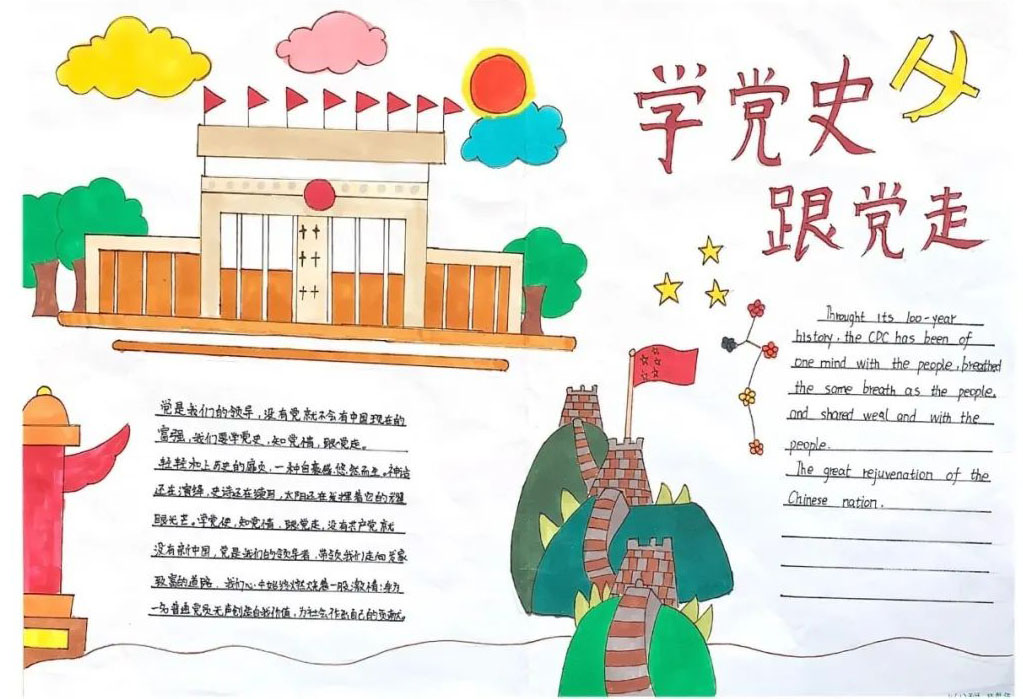 学党史
跟党走
党是我们的领导,没有党就不会有中国现在的
富强,我们要学党史,知党情,跟党走。
轻轻和上历史的扉页,一种自豪感悠然而生。神话
还在演绎,史诗还在续写,太阳还在发挥着它的耀
眼光芒。学党史,知党情,跟党走,没有共产党就
没有新中国,党是我们的领导者,带领我们走向发家
致富的道路,我们心中始终燃烧着一股激情:身为
一名普通党员无声创造自我价值,为社会作出自己的贡献。
Throught its 100-year
history, the CPC has been of
one mind with the people, breathed
the same breath as the people,
and shared weal and with the
people.
The great rejuvenation of the
Chinese nation.